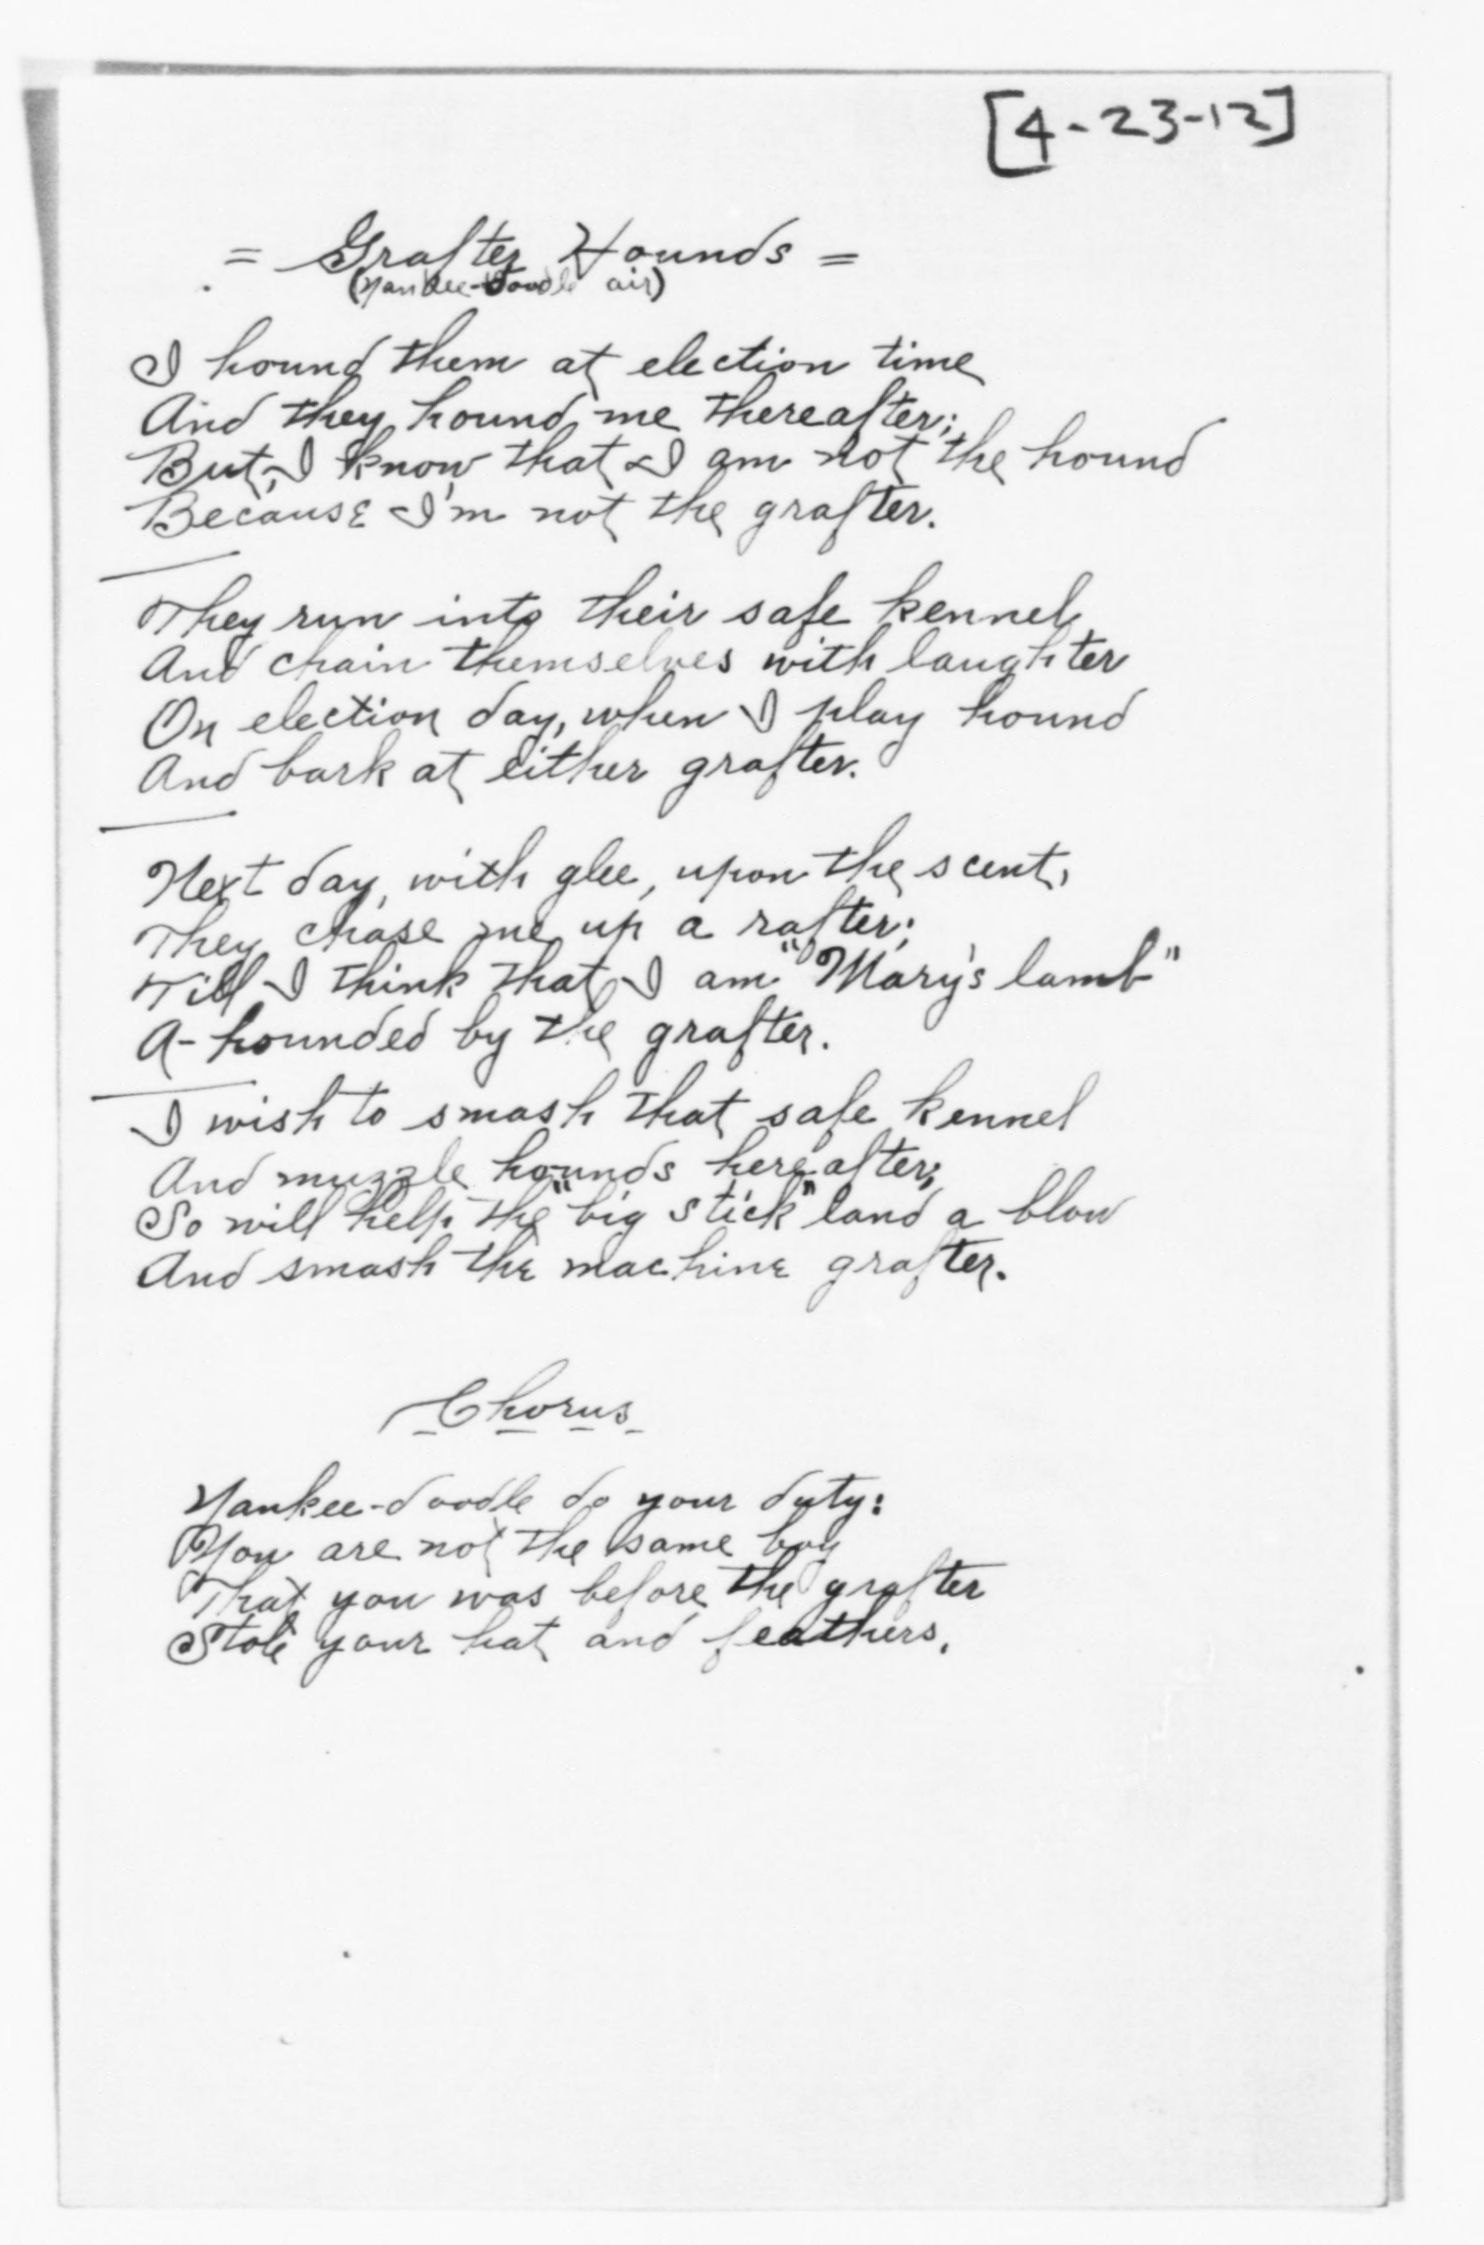 [4-23-12]
= Grafter Hounds =
(Yankee-doodle air)
I hound them at election time
And they hound me thereafter;
But, I know that I am not the hound
Because I'm not the grafter.
They run into their safe kennel
And chain themselves with laughter
On election day, when I play hound
And bark at either grafter.
Next day, with glee, upon the scent,
They chase me up a rafter;
Till I think that I am "Mary's lamb"
A-hounded by the grafter.
I wish to smash that safe kennel
And muzzle hounds hereafter;
So will help the "big stick" land a blow
And smash the machine grafter.
Chorus
Yankee-doodle do your duty:
You are not the same boy
That you was before the grafter
Stole your hat and feathers.